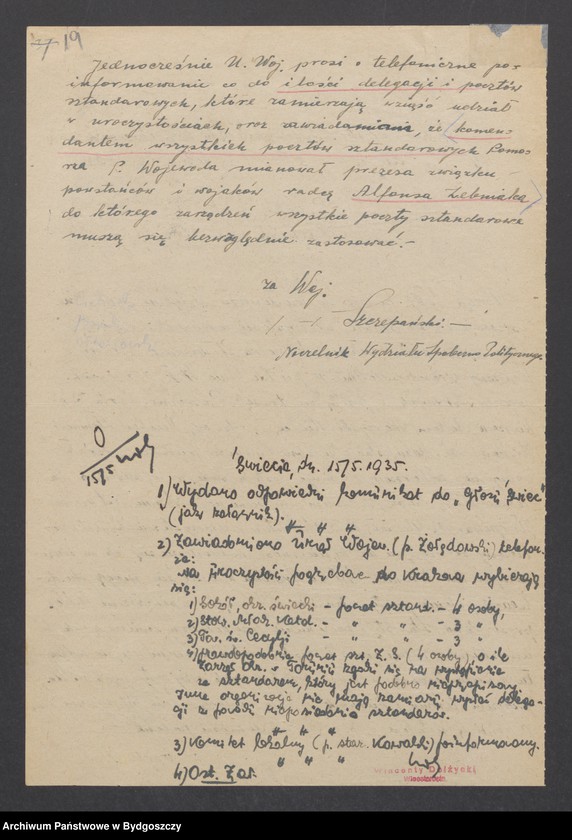 19
Jednocześnie U. Woj. prosi o telefoniczne po-
informowanie co do ilości delegacji i pocztów
sztandarowych, które zamierzają wziąść udział
w uroczystościach, oraz zawiadamia, że komen-
dantem wszystkich pocztów sztandarowych Pomo-
rza P. Wojewoda mianował prezesa związku
powstańców i wojaków radcę Alfonsa
do którego zarządzeń wszystkie poczty sztandarowe
muszą się bezwzględnie zastosować.-
za Woj.
/-/ Szczepański.-
Naczelnik Wydziału Społeczno Politycznego
0
15/5
Świecie, dn. 15/5.1935.
1) Wydano odpowiedni komunikat do "Głosu Świec"
(jak załącznik).
2) Zawiadomiono Urząd Wojew. (p. Żołędowski) telefon.
że:
Na uroczystości pogrzebowe do Krakowa wybierają
się:
1) Sokół, okr. świecki - poczet sztand. - 4 osoby,
2) Stow. Młodz. Katol. - " " - 3 "
3) Tow. św. Cecylji - " " - 3 "
4) prawdopodobnie poczet szt. Z. S. (4 osoby) o ile
Zarząd Okr. w Toruniu zgodzi się na wysłanie
ze sztandarem, który jest podobno nieprzepisowy.
Inne organizacje nie mają zamiaru wysłać delega-
cji z powodu nieposiadania sztandarów.
3) Komitet lokalny (p. star. Kowalski) poinformowany.
4) Ost. Zał.
Wincenty
Archiwum Państwowe w Bydgoszczy